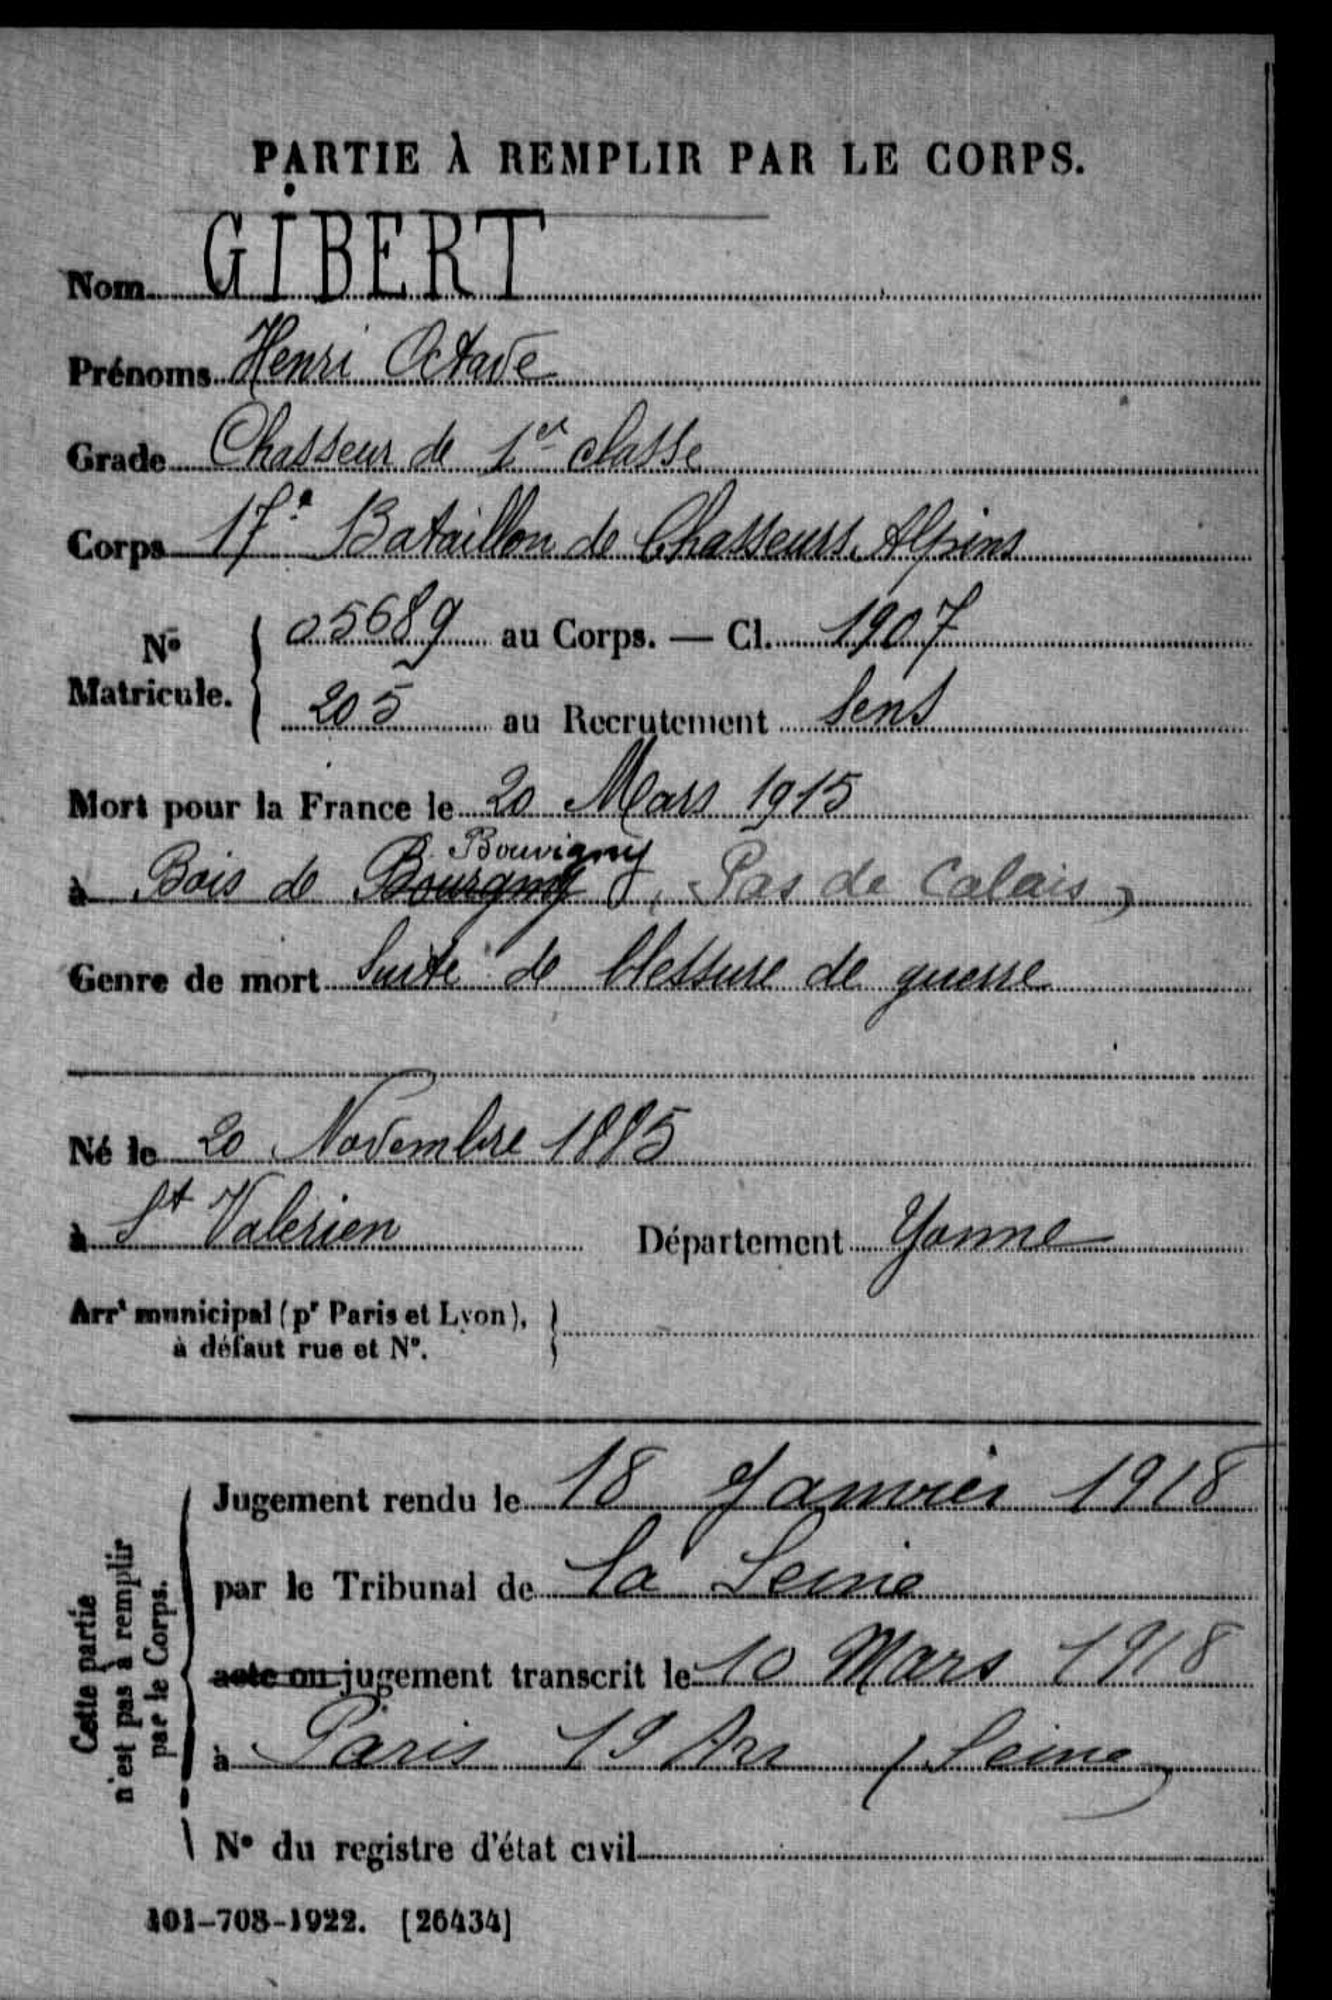 PARTIE À REMPLIR PAR LE CORPS.
Nom GIBERT
Prénoms Henri Octave
Grade Chasseur de 1er classe
Corps 17e Bataillon de Chasseurs Alpins
No Matricule. { 05689 au Corps. — Cl. 1907
205 au Recrutement Sens
Mort pour la France le 20 Mars 1915
Bouvigny
à Bois de Bourgny (Pas de Calais)
Genre de mort Suite de blessure de guerre
Né le 20 Novembre 1885
à St Valerien Département Yonne
Arrt municipal (pr Paris et Lyon),
à défaut rue et No.
Cette partie
n'est pas à remplir
par le Corps.
Jugement rendu le 18 Janvier 1918
par le Tribunal de la Seine
acte ou jugement transcrit le 10 Mars 1918
à Paris 19 Arr (Seine)
No du registre d'état civil
101-708-1922. [26434]